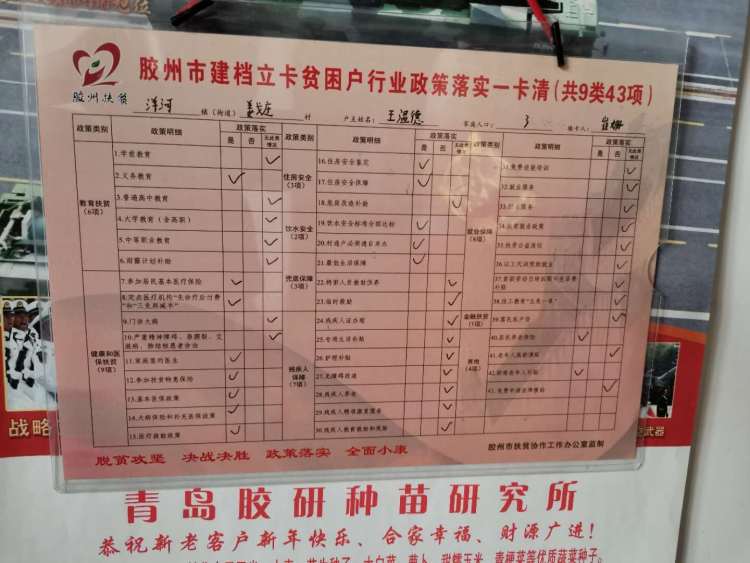 胶州市建档立卡贫困户行业政策落实一卡清(共9类43项)
胶州扶贫
洋河 镇(街道) 村 户主姓名: 王温德 家庭人口: 3 填卡人:
政策类别 政策明细 政策落实 政策类别 政策明细 政策落实 政策类别 政策明细 政策落实
是 否 无此类情况 是 否 无此类情况 是 否 无此类情况
教育扶贫(6项)
1.学前教育
2.义务教育
3.普通高中教育
4.大学教育(含高职)
5.中等职业教育
6.雨露计划补助
健康和医保扶贫(9项)
7.参加居民基本医疗保险
8.定点医疗机构"先诊疗后付费"和"三免两减半"
9.门诊大病
10.严重精神障碍、
11.家庭签约医生
12.参加扶贫特惠保险
13.基本医保政策
14.大病保险和补充医保政策
15.医疗救助政策
住房安全(3项)
16.住房安全鉴定
17.住房安全保障
18.危房改造补助
饮水安全(2项)
19.饮水安全标准全部达标
20.村通户必须通自来水
兜底保障(3项)
21.最低生活保障
22.特困人员救助供养
23.临时救助
残疾人保障(7项)
24.残疾人证办理
25.专项生活补贴
26.护理补贴
27.无障碍改造
28.残疾人养老
29.残疾人精准康复服务
30.残疾人教育救助和奖励
就业保障(8项)
31.免费技能培训
32.就业服务
35.扶贫公益岗位
金融扶贫(1项)
39.富民农户贷
养老(4项)
40.居民养老保险
脱贫攻坚 决战决胜 政策落实 全面小康
胶州市扶贫协作工作办公室监制
战略
武器
青岛胶研种苗研究所
恭祝新老客户新年快乐、合家幸福、财源广进!
大白菜、萝卜、甜糯玉米、青梗菜等优质蔬菜种子。